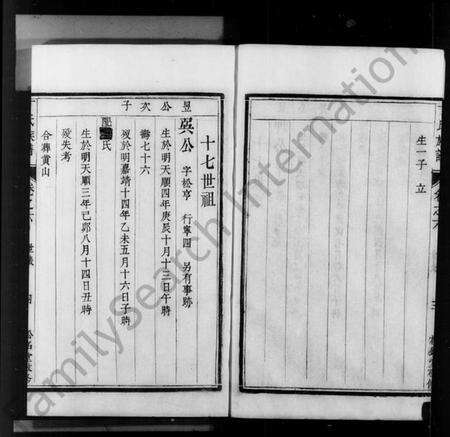 生一子 立
十七世祖
昱公次子
巽公 字松亭 行寧四 另有事跡
生於明天順四年庚辰十月十三日午時
壽七十六
歿於明嘉靖十四年乙未五月十六日子時
氏
生於明天順三年己卯八月十四日丑時
歿失考
合葬黄山
FamilySearch International